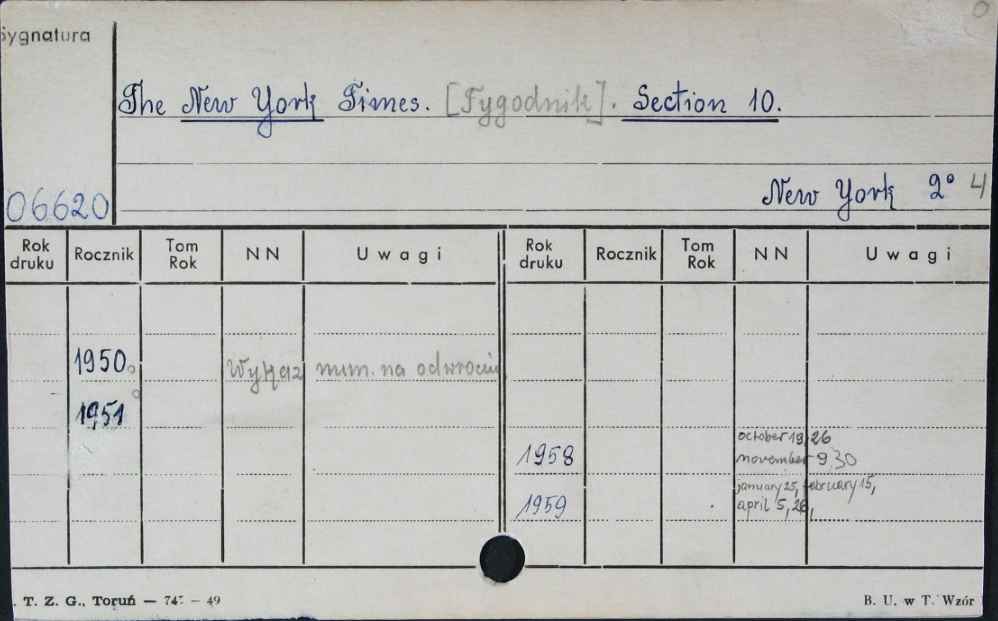 Sygnatura
The New York Times. [Tygodnik]. Section 10.
New York 2° 4
06620
Rok druku Rocznik Tom Rok NN Uwagi Rok druku Rocznik Tom Rok NN Uwagi
1950 Wykaz num. na odwrocie
1951
october 19, 26
1958 november 9, 30
january 25, february 15,
1959 april 5, 26,
T. Z. G., Toruń — 49
B. U. w T. Wzór